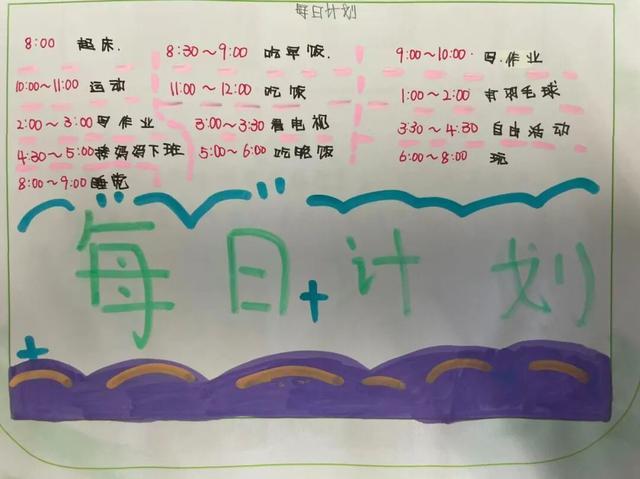 每日计划
8:00 起床.
8:30～9:00 吃早饭.
9:00～10:00. 写.作业
10:00～11:00 运动
11:00～12:00 吃饭
1:00～2:00 打羽毛球
2:00～3:00 写作业
3:00～3:30 看电视
3:30～4:30 自由活动
4:30～5:00 接妈妈下班
5:00～6:00 吃晚饭
6:00～8:00 玩
8:00～9:00 睡觉
每日计划